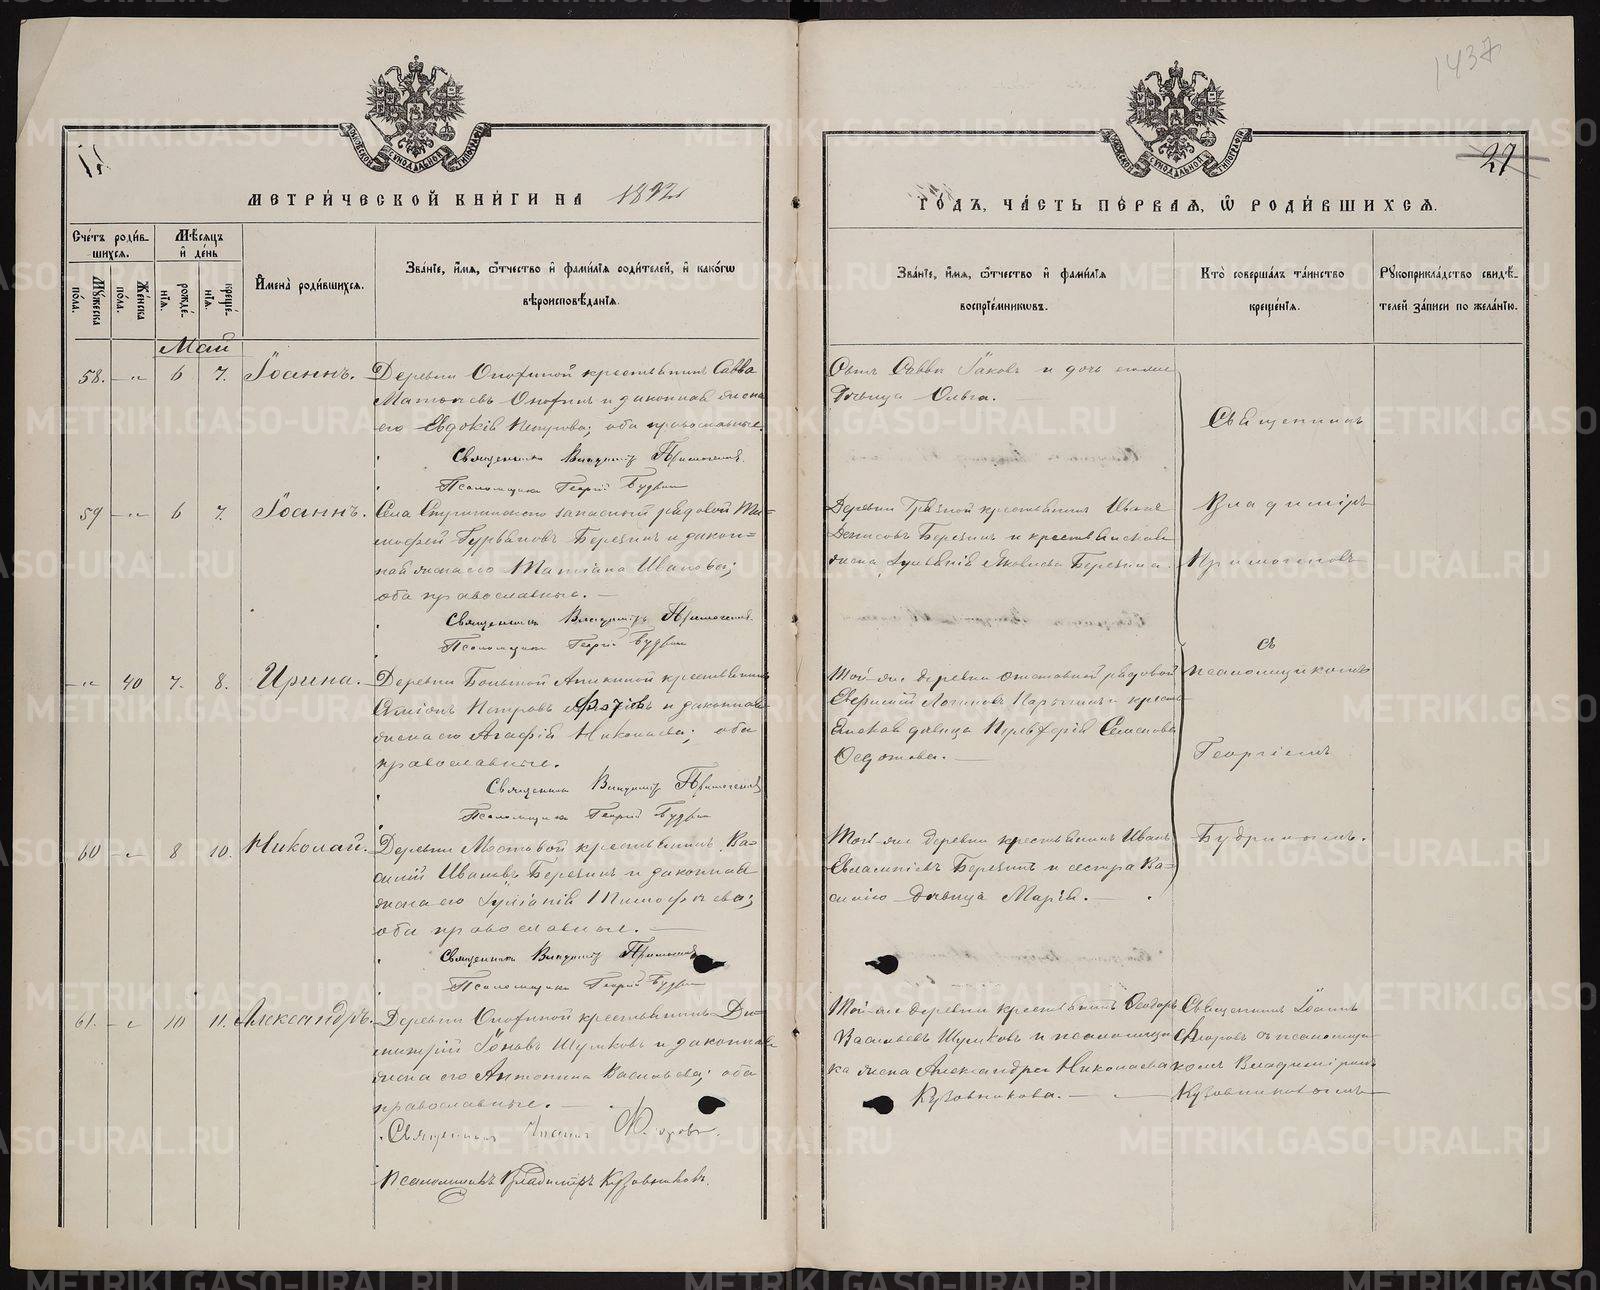 1437
27
МЕТРИ́ЧЕСКОЙ КНИ́ГИ НА 1892
ГО́ДЪ, ЧА́СТЬ ПЕ́РВАЯ, Ѽ РОДИ́ВШИХСѦ.
Сче́тъ роди́в-
шихсѧ.
Мꙋ́жеска по́ла.
Же́нска по́ла.
Мѣ́сѧцъ
и҆ де́нь
рожде́-
нїѧ.
креще́-
нїѧ.
И҆мена̀ роди́вшихсѧ.
Зва́нїе, и҆́мѧ, ѻ҆́тчество и҆ фами́лїѧ роди́телей, и҆ како́гѡ
вѣроисповѣ́данїѧ.
Зва́нїе, и҆́мѧ, ѻ҆́тчество и҆ фами́лїѧ
воспрїе́мникѡвъ.
Кто̀ соверша́лъ та́инство
креще́нїѧ.
Рꙋкоприкла́дство свидѣ́-
телей за́писи по жела́нїю.
Май
58. — „ 6 7. Іоаннъ. Деревни Опохиной крестьянинъ Савва
Матѳеевъ Опохинъ и законная жена
его Евдокія Петрова; оба православные.
Священникъ Владиміръ Примогеновъ.
Псаломщикъ Георгій Будринъ
Сынъ Саввы Іаковъ и дочь
дѣвица Ольга.
59 — „ 6 7. Іоаннъ. Села запасный рядовой Ти-
моѳей Гурьяновъ Березинъ и закон-
ная жена его Татіана Иванова;
оба православные. —
Священникъ Владиміръ Примогеновъ.
Псаломщикъ Георгій Будринъ
Деревни Грязной крестьянинъ Иванъ
Денисовъ Березинъ и крестьянская
жена Іуліанія Яковлева Березина.
— „ 40 7. 8. Ирина. Деревни Большой Аникиной крестьянинъ
Симеонъ Петровъ и законная
жена его Агафія Николаева; оба
православные.
Священникъ Владиміръ Примогеновъ
Псаломщикъ Георгій Будринъ
Той-же деревни отставной рядовой
Евфимій Логиновъ и кресть-
янская дѣвица Пульхерія Семенова
Ѳедотова. —
60 — „ 8 10. Николай. Деревни Мостовой крестьянинъ Ва-
силій Ивановъ Березинъ и законная
жена его Іуліанія Тимоѳеева;
оба православные. —
Священникъ Владиміръ Примогеновъ
Псаломщикъ Георгій Будринъ
Той-же деревни крестьянинъ Иванъ
Евлампіевъ Березинъ и сестра Ва-
силію дѣвица Марія. —
Священникъ
Владиміръ
Примогеновъ
съ
псаломщикомъ
Георгіемъ
Будринымъ.
61. — „ 10 11. Александръ. Деревни Опохиной крестьянинъ Ди-
митрій Іоновъ Шумковъ и законная
жена его Антонина Васильева; оба
православные. —
Священникъ Іоаннъ Флоровъ.
Псаломщикъ Владиміръ Кузовниковъ.
Той-же деревни крестьянинъ Ѳеодоръ
Васильевъ Шумковъ и псаломщи-
ка жена Александра Николаева
Кузовникова. —
Священникъ Іоаннъ
Флоровъ съ псаломщи-
комъ Владиміромъ
Кузовниковымъ
METRIKI.GASO-URAL.RU